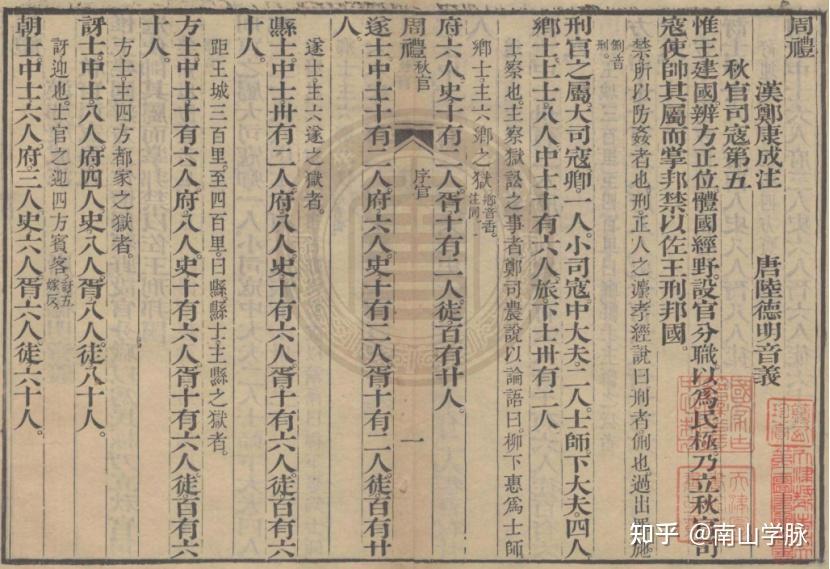 周禮
漢鄭康成注　唐陸德明音義
秋官司寇第五
惟王建國。辨方正位。體國經野。設官分職。以爲民極。乃立秋官司
寇。使帥其屬而掌邦禁。以佐王刑邦國。
禁所以防姦者也。刑。正人之灋。孝經說曰。刑者侀也。過出罪施
刑。侀音
刑官之屬。大司寇卿一人。小司寇中大夫二人。士師下大夫四人
鄉士上士八人。中士十有六人。旅下士卅有二人
士察也。主察獄訟之事者。鄭司農說以論語曰。柳下惠爲士師
鄉士主六鄉之獄。鄉音香。注同
府六人。史十有二人。胥十有二人。徒百有廿人。
周禮 秋官 序官 一
遂士中士十有二人。府六人。史十有二人。胥十有二人。徒百有廿
人。
遂士主六遂之獄者。
縣士中士卅有二人。府八人。史十有六人。胥十有六人。徒百有六
十人。
距王城三百里。至四百里。曰縣。縣士主縣之獄者。
方士中士十有六人。府八人。史十有六人。胥十有六人。徒百有六
十人。
方士主四方都家之獄者。
訝士中士八人。府四人。史八人。胥八人。徒八十人。
訝迎也。士官之迎四方賓客。訝五嫁反。
朝士中士六人。府三人。史六人。胥六人。徒六十人。
知乎 @南山学脉